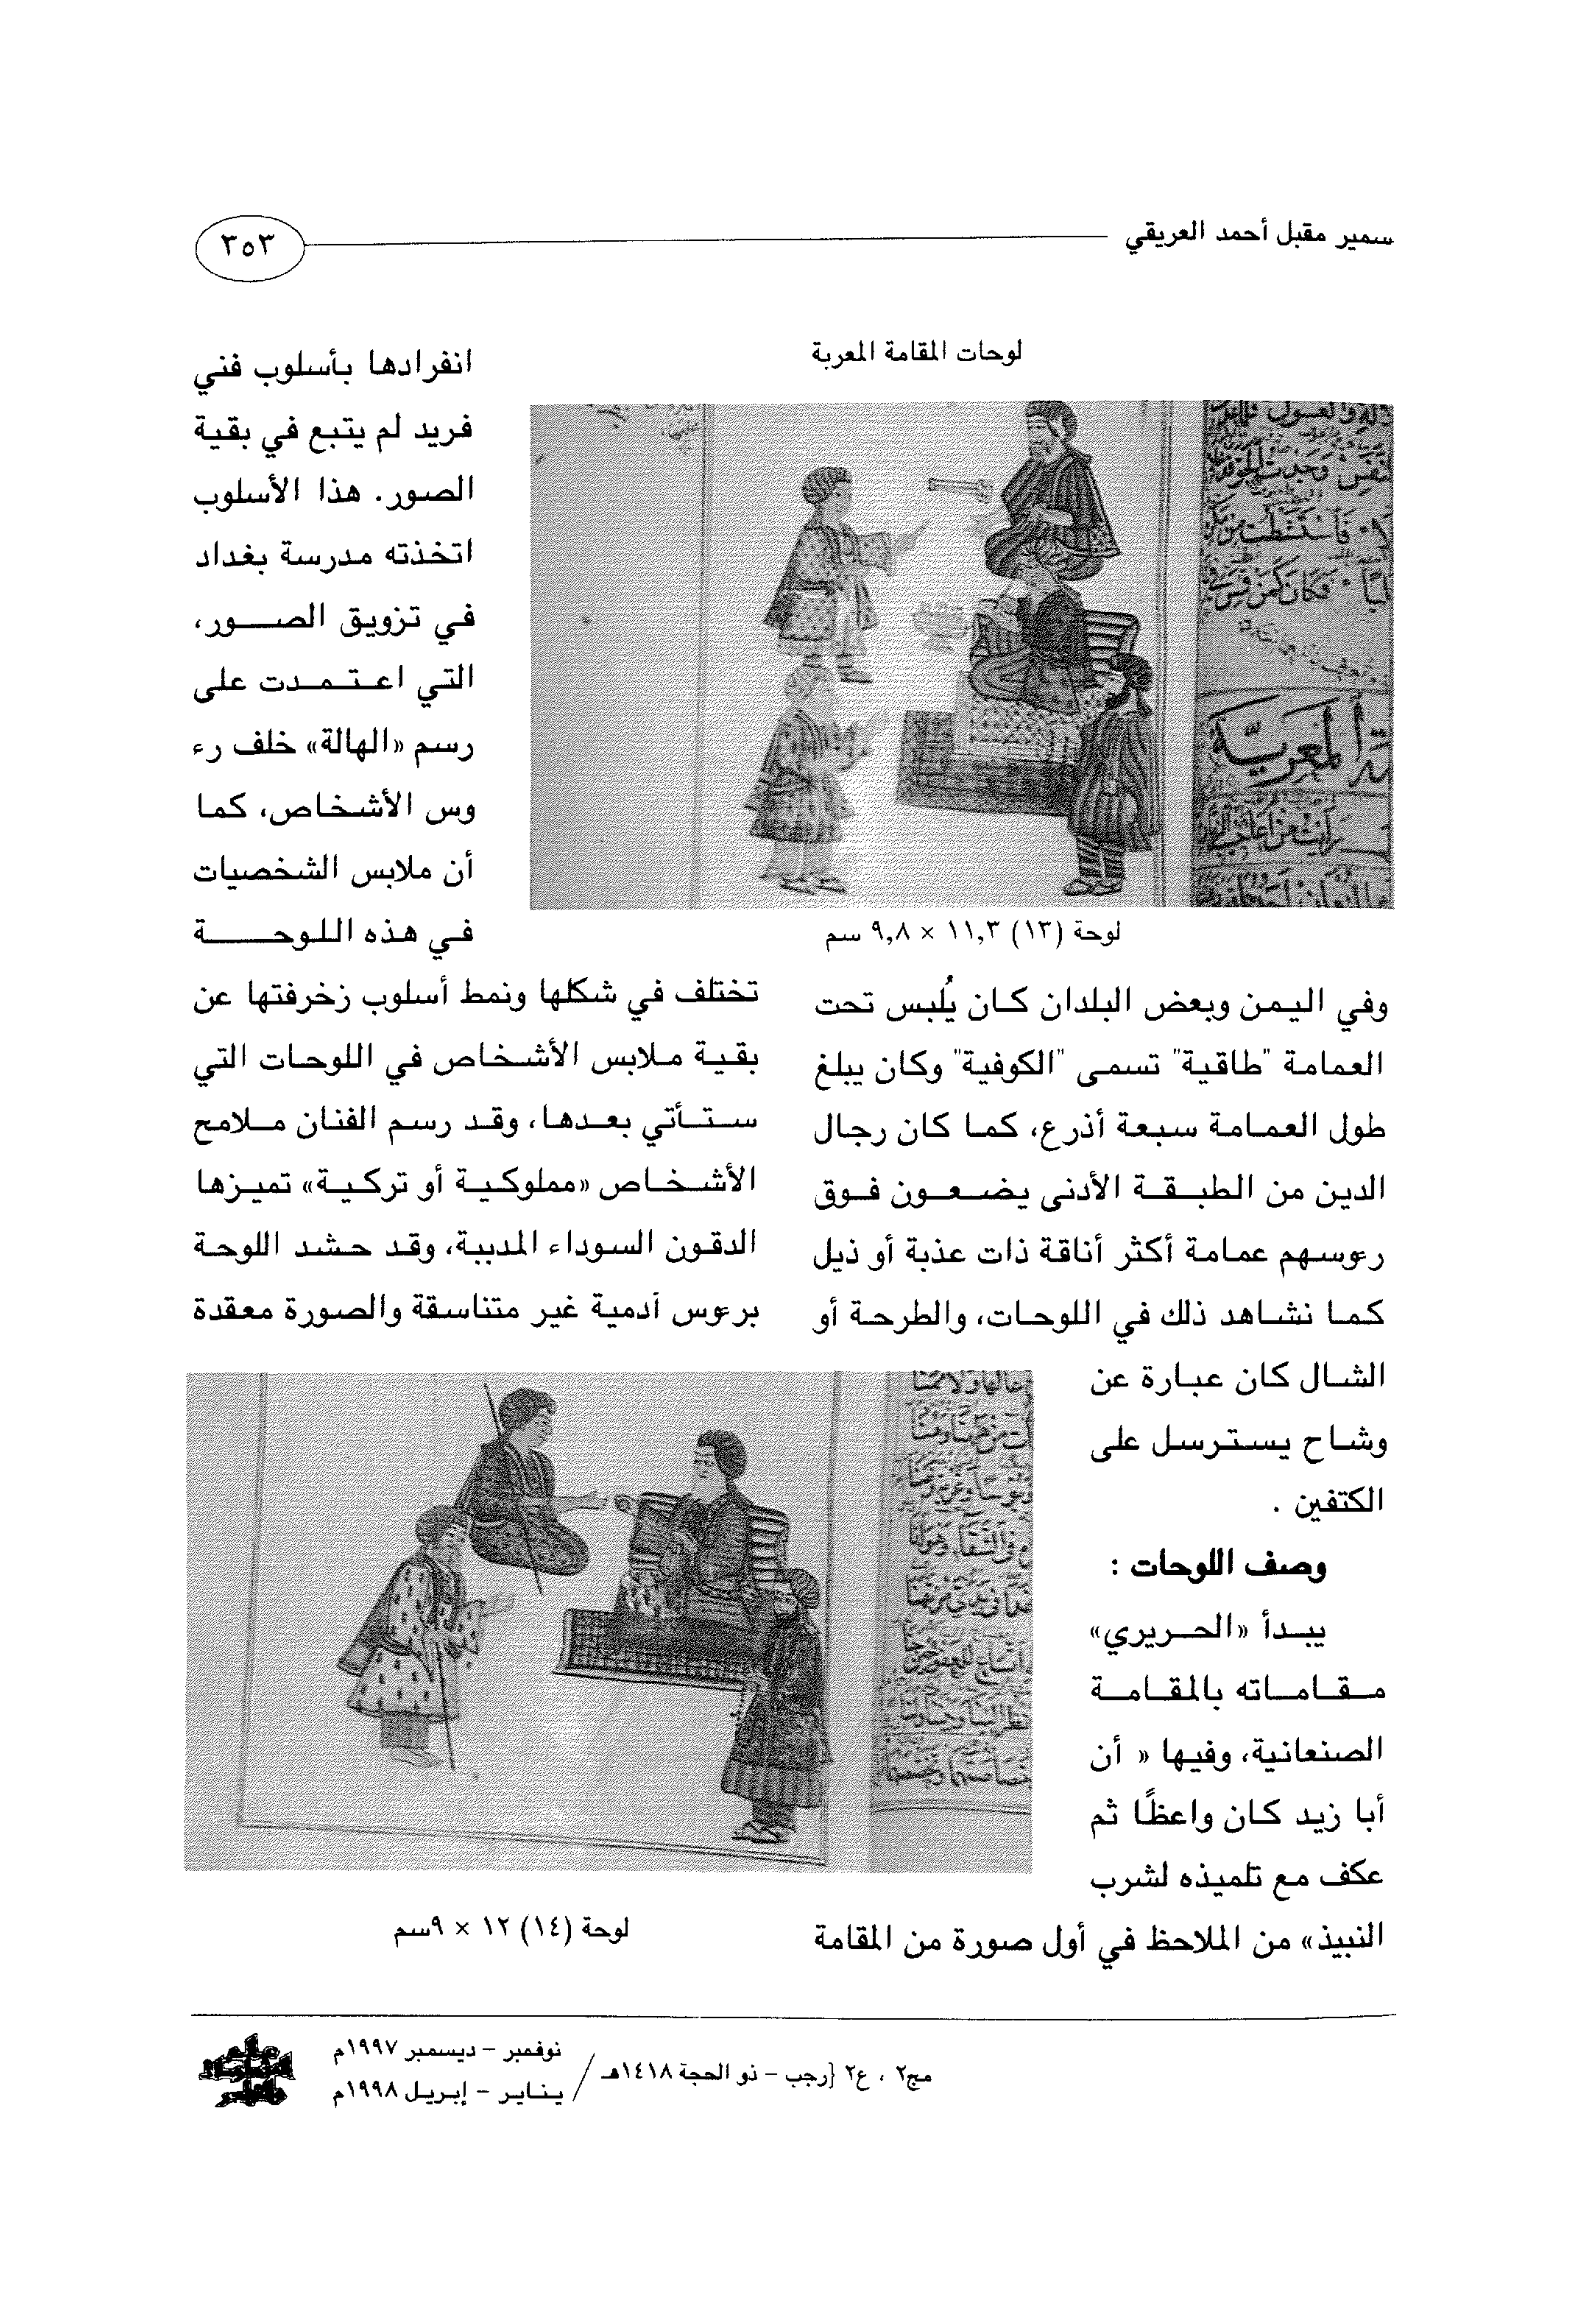 سمير مقبل أحمد العريقي
٣٥٣
لوحات المقامة المعربة
لوحة (١٣) ١١,٣ × ٩,٨ سم
وفي اليمن وبعض البلدان كان يُلبس تحت
العمامة "طاقية" تسمى "الكوفية" وكان يبلغ
طول العمامة سبعة أذرع، كما كان رجال
الدين من الطبقة الأدنى يضعون فوق
رءوسهم عمامة أكثر أناقة ذات عذبة أو ذيل
كما نشاهد ذلك في اللوحات، والطرحة أو
الشال كان عبارة عن
وشاح يسترسل على
الكتفين .
وصف اللوحات :
يبدأ «الحريري»
مقاماته بالمقامة
الصنعانية، وفيها « أن
أبا زيد كان واعظًا ثم
عكف مع تلميذه لشرب
النبيذ» من الملاحظ في أول صورة من المقامة
انفرادها بأسلوب فني
فريد لم يتبع في بقية
الصور. هذا الأسلوب
اتخذته مدرسة بغداد
في تزويق الصور،
التي اعتمدت على
رسم «الهالة» خلف رء
وس الأشخاص، كما
أن ملابس الشخصيات
في هذه اللوحة
تختلف في شكلها ونمط أسلوب زخرفتها عن
بقية ملابس الأشخاص في اللوحات التي
ستأتي بعدها، وقد رسم الفنان ملامح
الأشخاص «مملوكية أو تركية» تميزها
الدقون السوداء المدببة، وقد حشد اللوحة
برءوس آدمية غير متناسقة والصورة معقدة
لوحة (١٤) ١٢ × ٩سم
مج٢ ، ع٢ {رجب – ذو الحجة ١٤١٨هـ /
نوفمبر – ديسمبر ١٩٩٧م
يناير – إبريل ١٩٩٨م